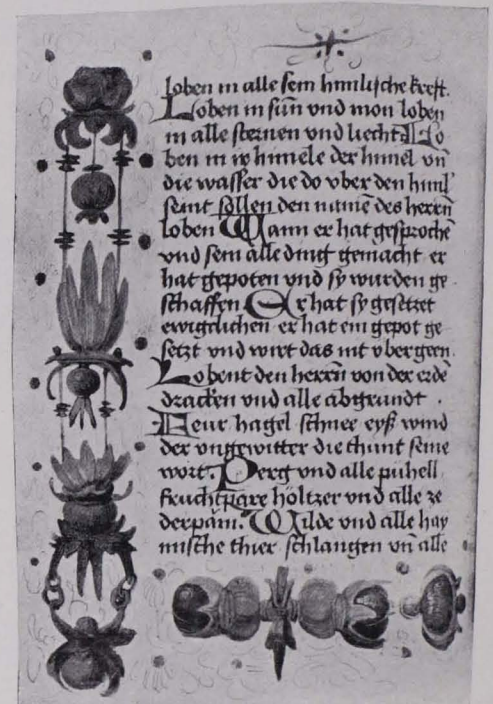 loben in alle sein himlische kreft.
Loben in sun vnd mon loben
in alle sternen vnd liecht Lo
ben in ir himele der himel vn̄
die wasser die do vber den himl
seint sollen den namē des herrn̄
loben Wann er hat gesprochē
vnd sein alle ding gemacht er
hat gepoten vnd sy wurden ge
schaffen Er hat sy gesetzet
ewigclichen er hat ein gepot ge
setzt vnd wirt das nit vbergeen.
Lobent den herrn̄ von der erdē
dracken vnd alle abgrundt .
Feur hagel schnee eyß wind
der vngewitter die thunt seine
wort. Perg vnd alle pühell
fruchtpäre höltzer vnd alle ze
derpäm. Wilde vnd alle hay
mische thier schlangen vn̄ alle